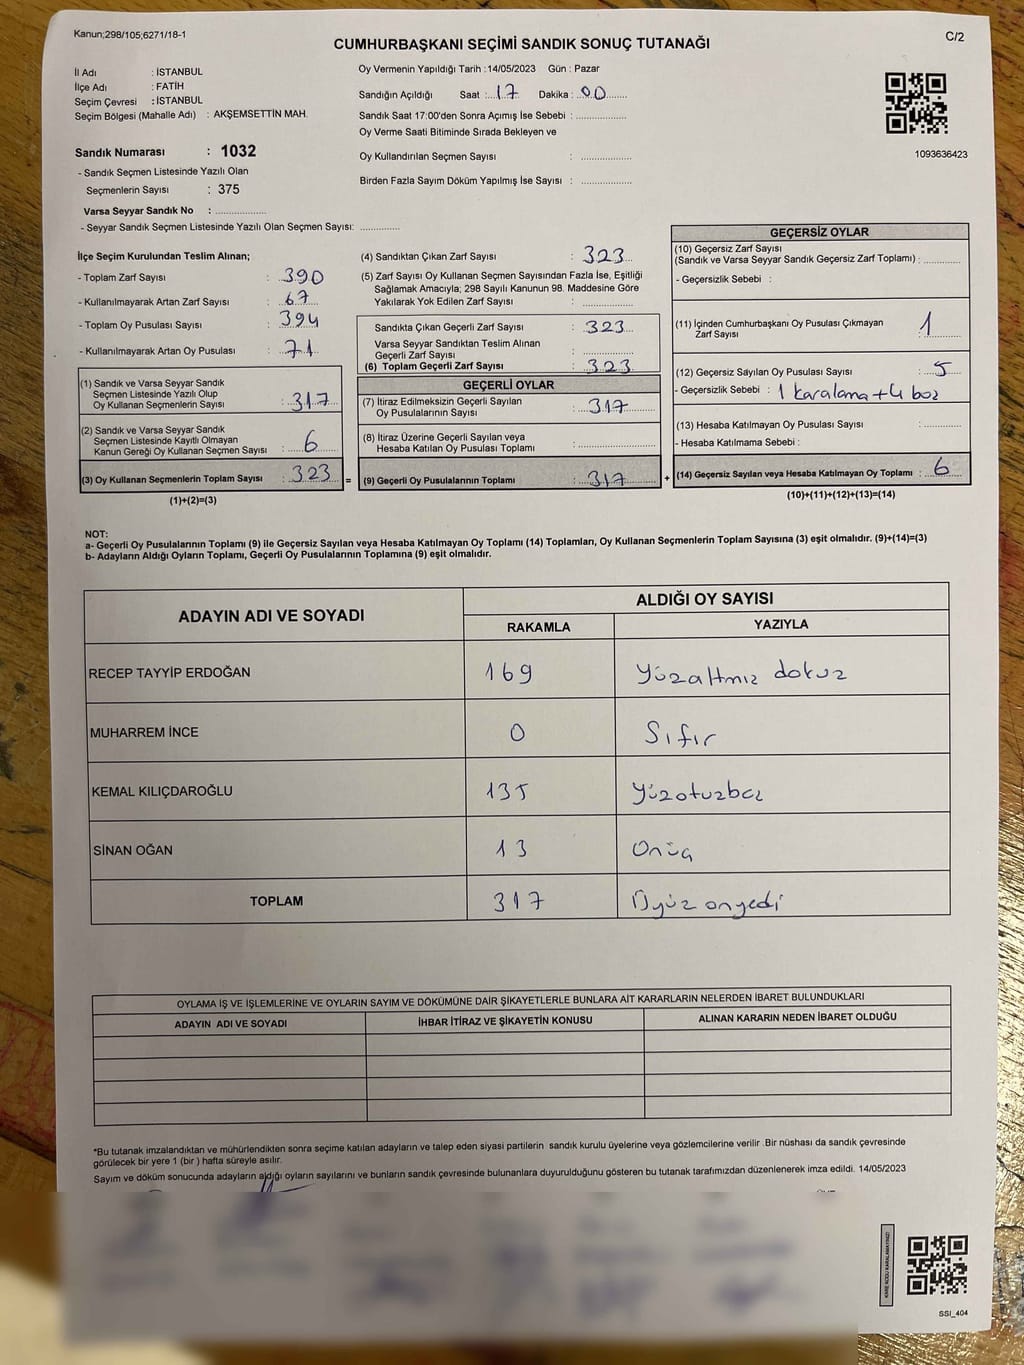 Kanun;298/105;6271/18-1
C/2
CUMHURBAŞKANI SEÇİMİ SANDIK SONUÇ TUTANAĞI
İl Adı : İSTANBUL
İlçe Adı : FATİH
Seçim Çevresi : İSTANBUL
Seçim Bölgesi (Mahalle Adı) : AKŞEMSETTİN MAH.
Sandık Numarası : 1032
- Sandık Seçmen Listesinde Yazılı Olan
Seçmenlerin Sayısı : 375
Varsa Seyyar Sandık No : ..................
- Seyyar Sandık Seçmen Listesinde Yazılı Olan Seçmen Sayısı: .............
Oy Vermenin Yapıldığı Tarih :14/05/2023 Gün : Pazar
Sandığın Açıldığı Saat : 17 Dakika : 00
Sandık Saat 17:00'den Sonra Açımış İse Sebebi : ..................
Oy Verme Saati Bitiminde Sırada Bekleyen ve
Oy Kullandırılan Seçmen Sayısı : ..................
Birden Fazla Sayım Döküm Yapılmış İse Sayısı : ..................
1093636423
İlçe Seçim Kurulundan Teslim Alınan;
- Toplam Zarf Sayısı : 390
- Kullanılmayarak Artan Zarf Sayısı : 67
- Toplam Oy Pusulası Sayısı : 394
- Kullanılmayarak Artan Oy Pusulası : 71
(1) Sandık ve Varsa Seyyar Sandık
Seçmen Listesinde Yazılı Olup
Oy Kullanan Seçmenlerin Sayısı : 317
(2) Sandık ve Varsa Seyyar Sandık
Seçmen Listesinde Kayıtlı Olmayan
Kanun Gereği Oy Kullanan Seçmen Sayısı : 6
(3) Oy Kullanan Seçmenlerin Toplam Sayısı : 323 =
(1)+(2)=(3)
(4) Sandıktan Çıkan Zarf Sayısı : 323
(5) Zarf Sayısı Oy Kullanan Seçmen Sayısından Fazla İse, Eşitliği
Sağlamak Amacıyla; 298 Sayılı Kanunun 98. Maddesine Göre
Yakılarak Yok Edilen Zarf Sayısı : ..................
Sandıkta Çıkan Geçerli Zarf Sayısı : 323
Varsa Seyyar Sandıktan Teslim Alınan
Geçerli Zarf Sayısı : ..................
(6) Toplam Geçerli Zarf Sayısı : 323
GEÇERLİ OYLAR
(7) İtiraz Edilmeksizin Geçerli Sayılan
Oy Pusulalarının Sayısı : 317
(8) İtiraz Üzerine Geçerli Sayılan veya
Hesaba Katılan Oy Pusulası Toplamı : ..................
(9) Geçerli Oy Pusulalarının Toplamı : 317 +
GEÇERSİZ OYLAR
(10) Geçersiz Zarf Sayısı
(Sandık ve Varsa Seyyar Sandık Geçersiz Zarf Toplamı) : ............
- Geçersizlik Sebebi :
(11) İçinden Cumhurbaşkanı Oy Pusulası Çıkmayan
Zarf Sayısı 1
(12) Geçersiz Sayılan Oy Pusulası Sayısı : 5
- Geçersizlik Sebebi : 1 karalama + 4 boz
(13) Hesaba Katılmayan Oy Pusulası Sayısı : ............
- Hesaba Katılmama Sebebi :
(14) Geçersiz Sayılan veya Hesaba Katılmayan Oy Toplamı : 6
(10)+(11)+(12)+(13)=(14)
NOT:
a- Geçerli Oy Pusulalarının Toplamı (9) ile Geçersiz Sayılan veya Hesaba Katılmayan Oy Toplamı (14) Toplamları, Oy Kullanan Seçmenlerin Toplam Sayısına (3) eşit olmalıdır. (9)+(14)=(3)
b- Adayların Aldığı Oyların Toplamı, Geçerli Oy Pusulalarının Toplamına (9) eşit olmalıdır.
ADAYIN ADI VE SOYADI
ALDIĞI OY SAYISI
RAKAMLA YAZIYLA
RECEP TAYYİP ERDOĞAN 169 Yüzaltmız dokuz
MUHARREM İNCE 0 Sıfır
KEMAL KILIÇDAROĞLU 135 Yüzotuzbeş
SİNAN OĞAN 13 Onüç
TOPLAM 317 Üçyüz onyedi
OYLAMA İŞ VE İŞLEMLERİNE VE OYLARIN SAYIM VE DÖKÜMÜNE DAİR ŞİKAYETLERLE BUNLARA AİT KARARLARIN NELERDEN İBARET BULUNDUKLARI
ADAYIN ADI VE SOYADI İHBAR İTİRAZ VE ŞİKAYETİN KONUSU ALINAN KARARIN NEDEN İBARET OLDUĞU
*Bu tutanak imzalandıktan ve mühürlendikten sonra seçime katılan adayların ve talep eden siyasi partilerin sandık kurulu üyelerine veya gözlemcilerine verilir .Bir nüshası da sandık çevresinde
görülecek bir yere 1 (bir ) hafta süreyle asılır.
Sayım ve döküm sonucunda adayların aldığı oyların sayılarını ve bunların sandık çevresinde bulunanlara duyurulduğunu gösteren bu tutanak tarafımızdan düzenlenerek imza edildi. 14/05/2023
KARE KODU KARALAMAYINIZ!
SSI_404